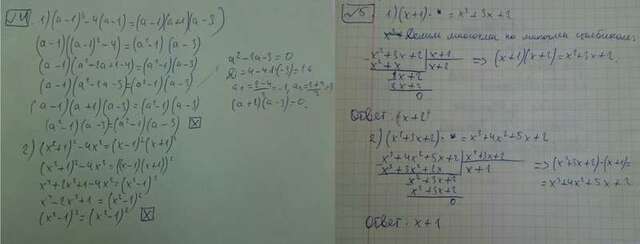 √4
1) (a-1)³-4(a-1)=(a-1)(a+1)(a-3)
(a-1)((a-1)²-4)=(a²-1)(a-3)
(a-1)(a²-2a+1-4)=(a²-1)(a-3)
(a-1)(a²-2a-3)=(a²-1)(a-3)
(a-1)(a+1)(a-3)=(a²-1)(a-3)
(a²-1)(a-3)=(a²-1)(a-3)
a²-2a-3=0
(a+1)(a-3)=0
2) (x²+1)²-4x²=(x-1)²(x+1)²
(x²+1)²-4x²=((x-1)(x+1))²
x⁴+2x²+1-4x²=(x²-1)²
x⁴-2x²+1=(x²-1)²
(x²-1)²=(x²-1)²
√5
1) (x+1)·*=x²+3x+2
Делим многочлен на многочлен столбиком:
x²+3x+2 | x+1
x²+x | x+2
2x+2
2x+2
0
=> (x+1)(x+2)=x²+3x+2
Ответ: x+2
2) (x²+3x+2)·*=x³+4x²+5x+2
x³+4x²+5x+2 | x²+3x+2
x³+3x²+2x | x+1
x²+3x+2
x²+3x+2
0
=> (x²+3x+2)·(x+1)=
=x³+4x²+5x+2
Ответ: x+1